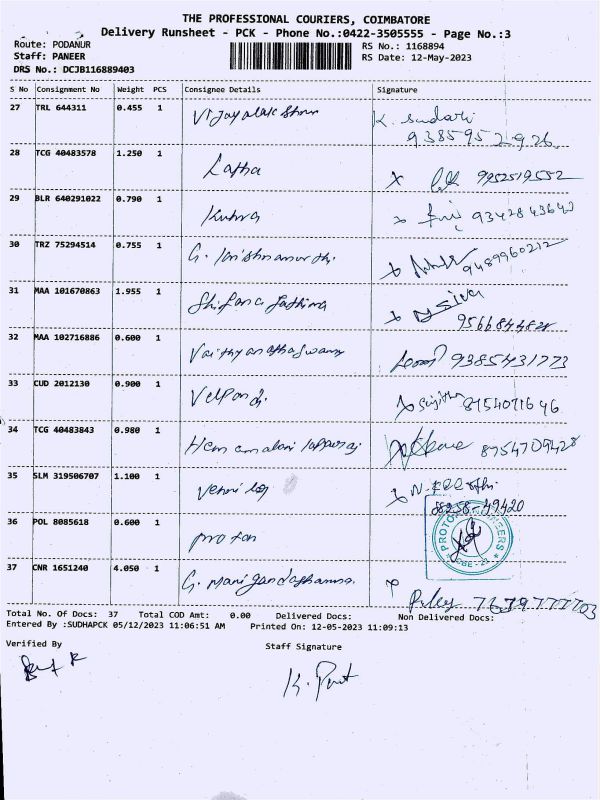 THE PROFESSIONAL COURIERS, COIMBATORE
Delivery Runsheet - PCK - Phone No.:0422-3505555 - Page No.:3
Route: PODANUR
RS No.: 1168894
Staff: PANEER
RS Date: 12-May-2023
DRS No.: DCJB116889403
S No Consignment No Weight PCS Consignee Details Signature
27 TRL 644311 0.455 1 K. Sudari
9385952926
28 TCG 40483578 1.250 1 Latha 9952519552
29 BLR 640291022 0.790 1 9342843640
30 TRZ 75294514 0.755 1 G. 9489960212
31 MAA 101670863 1.955 1 Shifana Fathima Siva
9566844828
32 MAA 102716886 0.600 1 9385431773
33 CUD 2012130 0.900 1 Sujitha 8754071646
34 TCG 40483843 0.980 1 8754709428
35 SLM 319506707 1.100 1 N.
88258-49420
36 POL 8085618 0.600 1 Proton
37 CNR 1651240 4.050 1 G.
Total No. Of Docs: 37 Total COD Amt: 0.00 Delivered Docs: Non Delivered Docs:
Entered By :SUDHAPCK 05/12/2023 11:06:51 AM Printed On: 12-05-2023 11:09:13
Verified By Staff Signature
K.